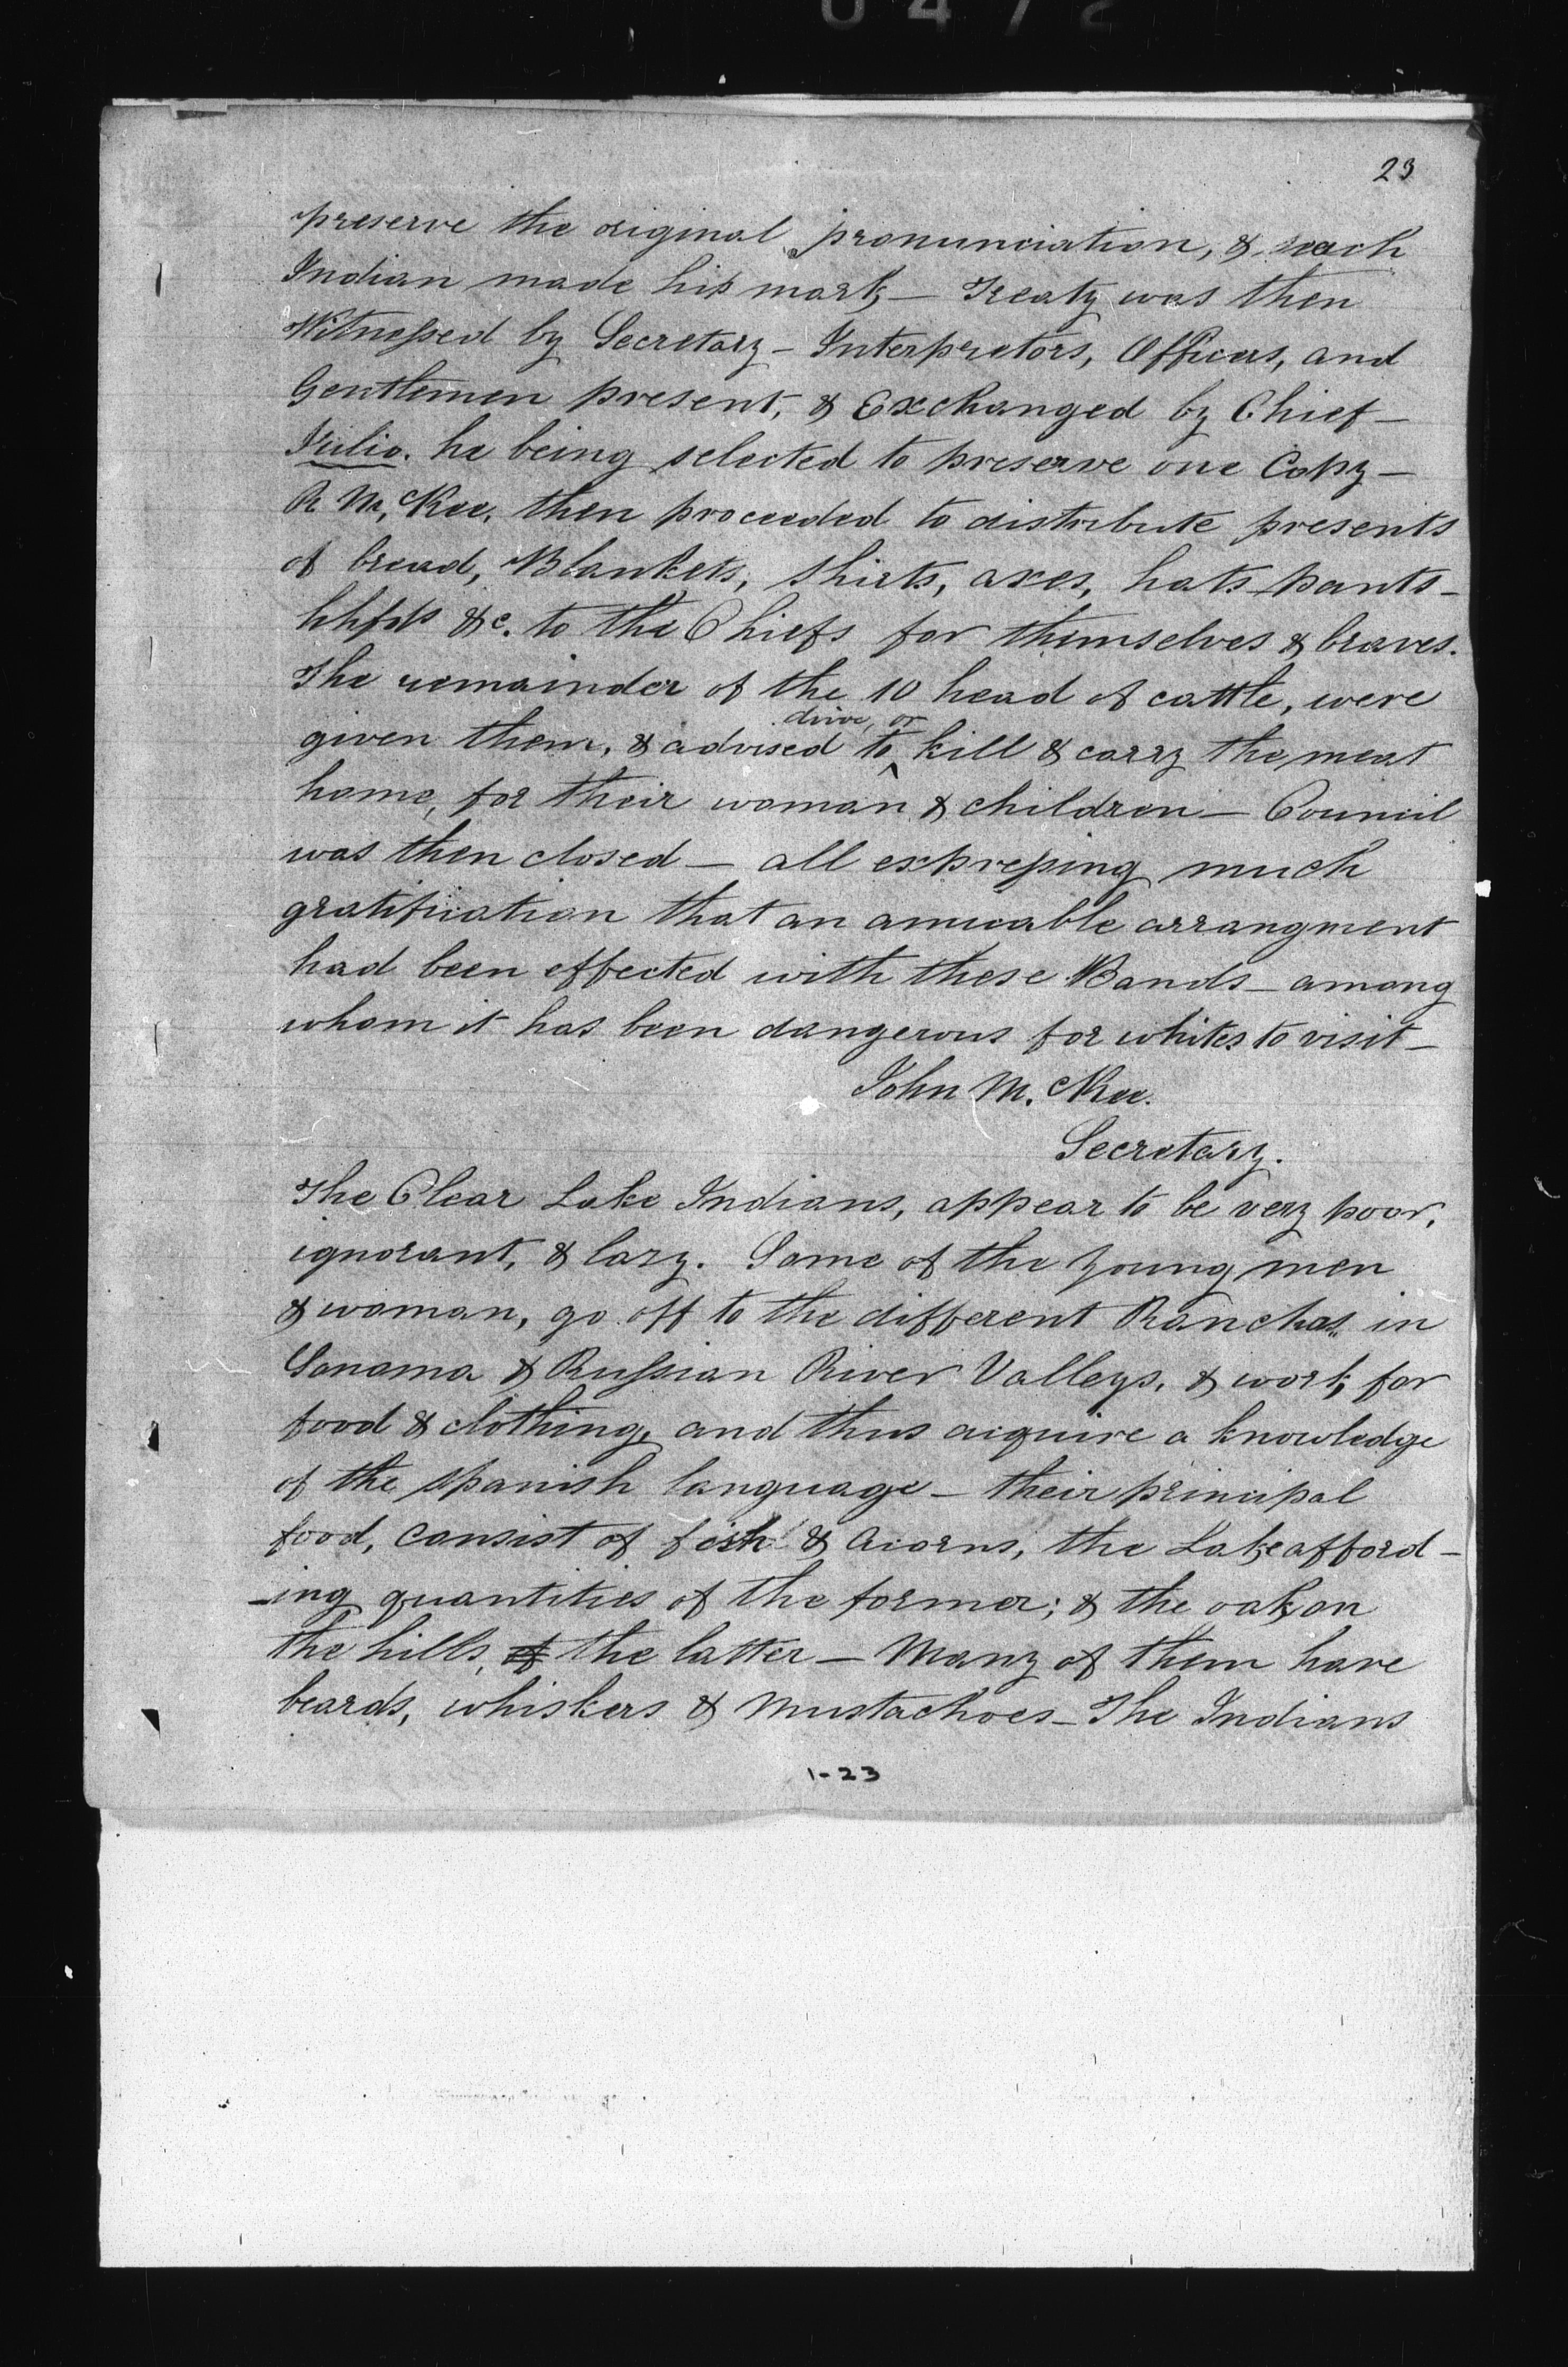 0472
23
preserve the original pronunciation, & each
Indian made his mark — Treaty was then
Witnessed by Secretary — Interpretors, Officers, and
Gentlemen present, & Exchanged by Chief —
Julio. he being selected to preserve one Copy —
R McKee, then proceeded to distribute presents
of bread, Blankets, shirts, axes, hats pants —
hhfds &c. to the Chiefs for themselves & braves.
The remainder of the 10 head of cattle, were
drive, or
given them, & advised to ^ kill & carry the meat
home, for their woman & children — Council
was then closed — all expressing much
gratification that an amicable arrangment
had been effected with these Bands — among
whom it has been dangerous for whites to visit —
John McKee.
Secretary.
The Clear Lake Indians, appear to be very poor,
ignorant, & lazy. Some of the young men
& woman, go off to the different Ranchos in
Sonoma & Russian River Valleys, & work for
food & clothing, and thus aiquire a knowledge
of the spanish language — their principal
food, consist of fish & Acorns, the Lake afford —
— ing quantities of the former; & the oak on
the hills, of the latter — Many of them have
beards, whiskers & Mustachoes — The Indians
1-23